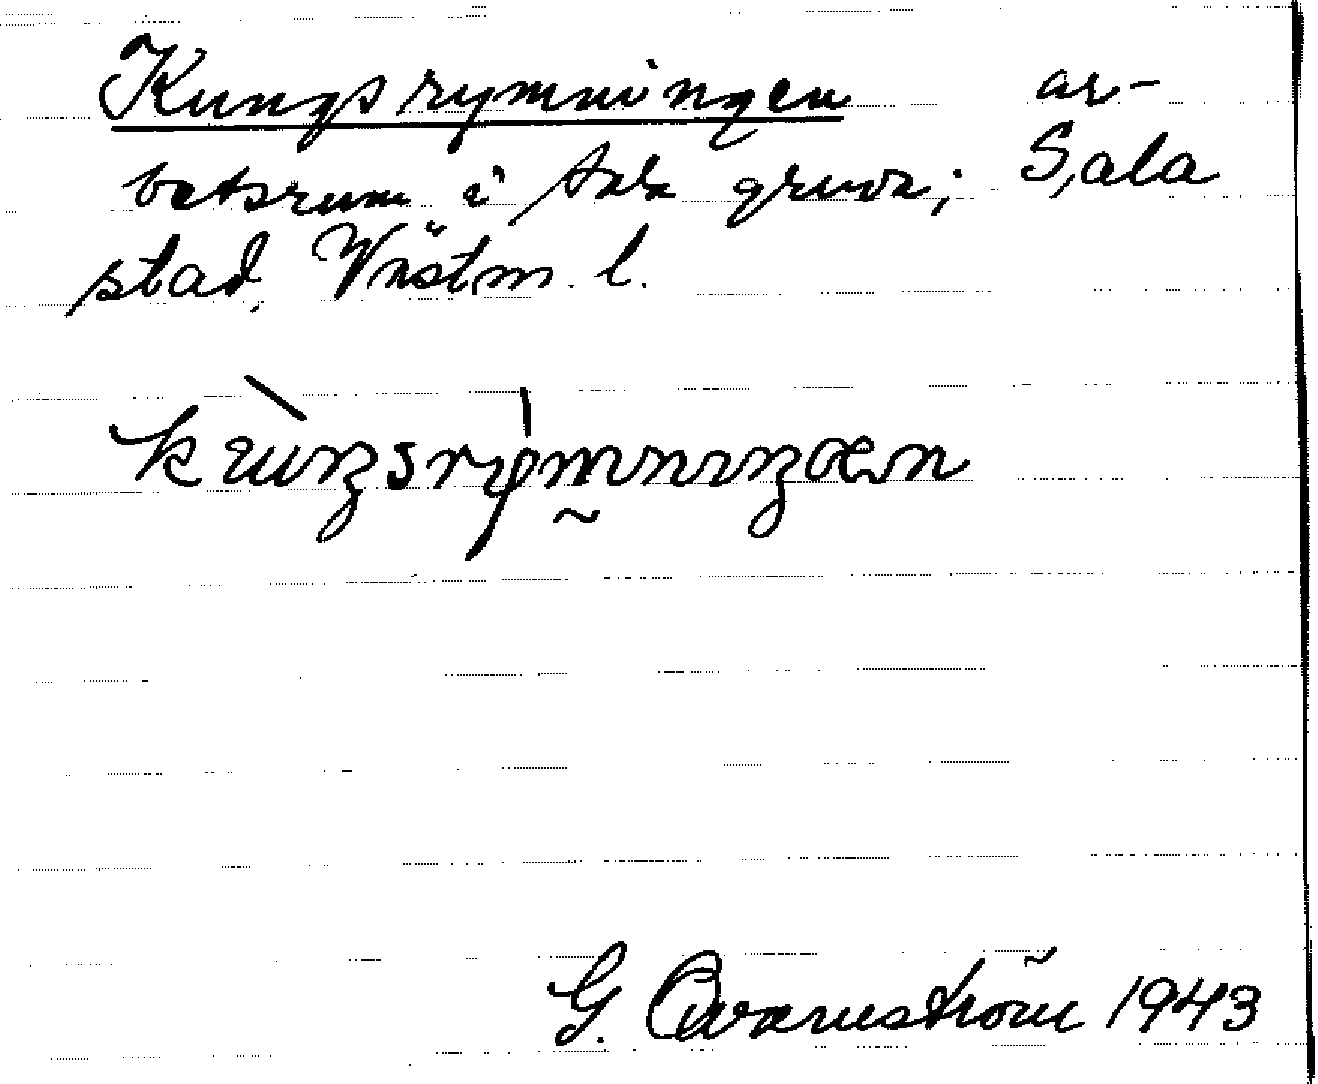 Kungsrymningen ar-
betsrum i Sala gruva; Sala
stad, Västm. l.
kùŋsrymniŋæn
G. Qvarnström 1943